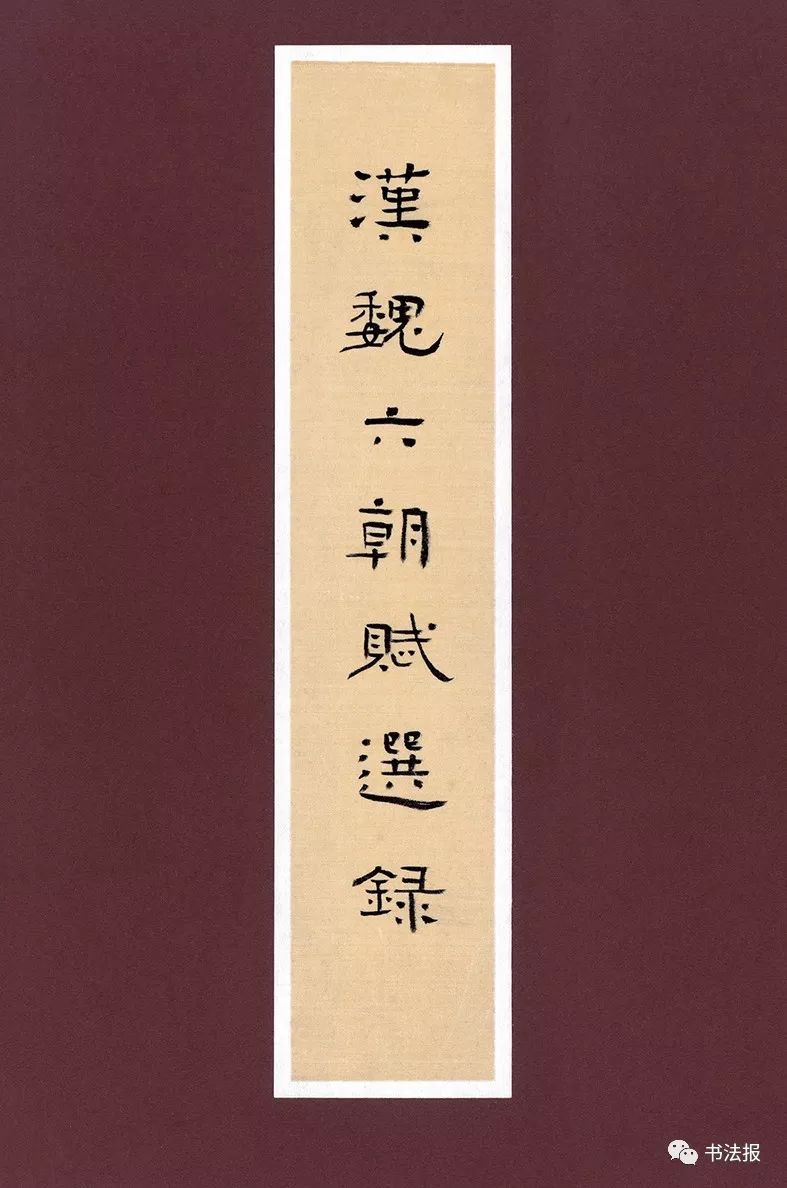 漢魏六朝賦選録
书法报